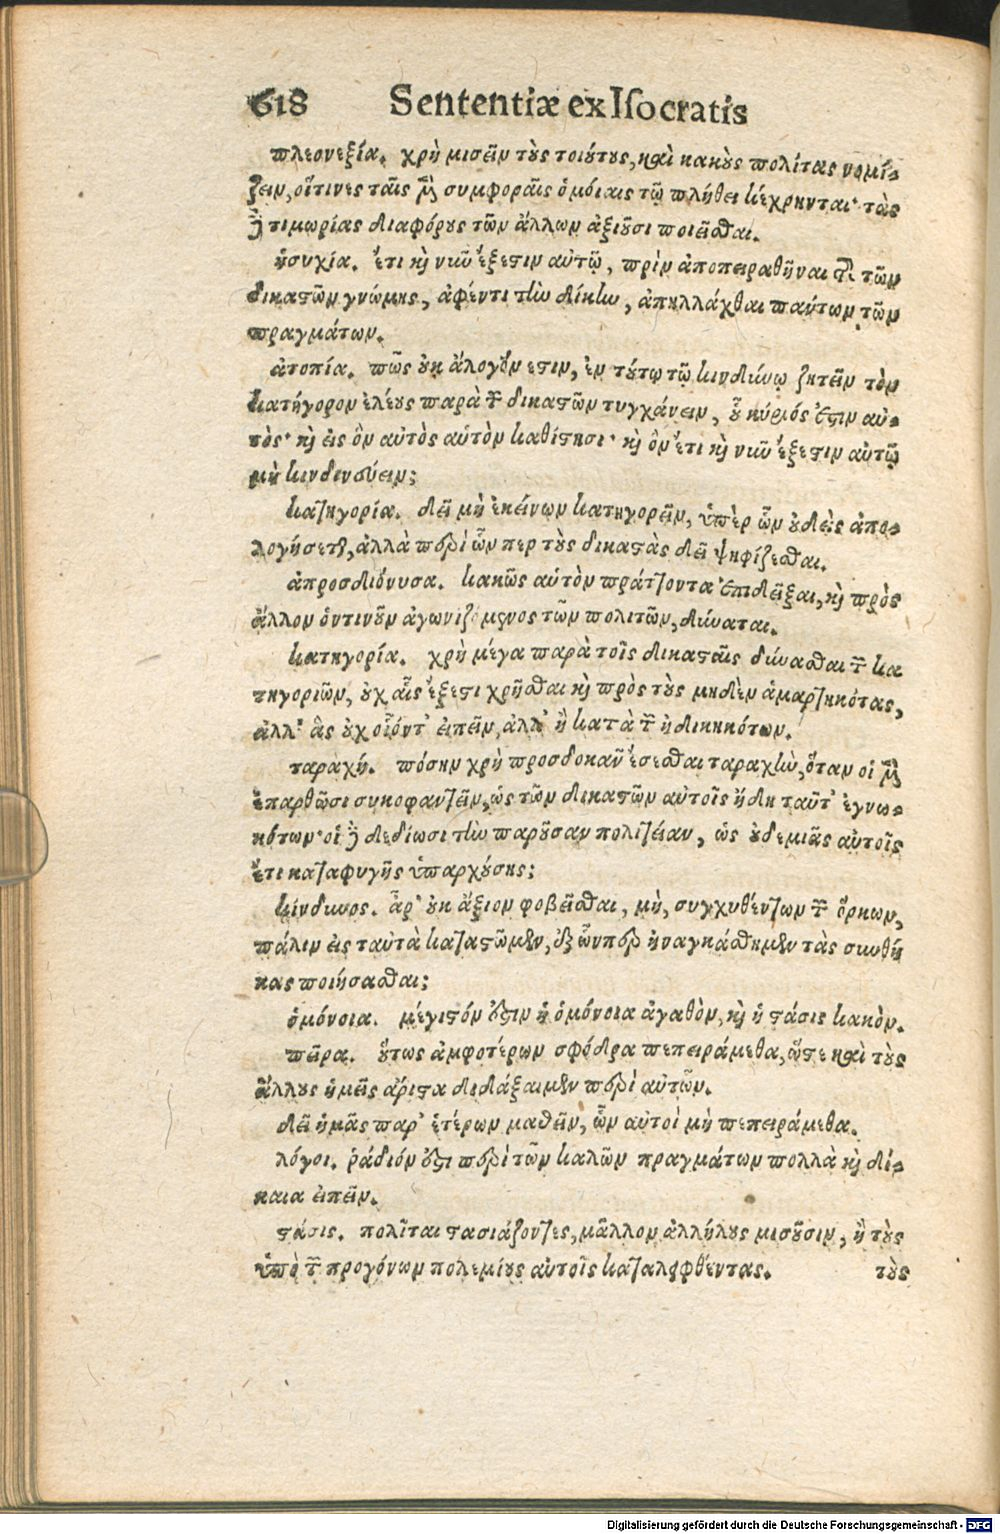 618 Sententiæ ex Isocratis
πλεονεξία. χρὴ μισεῖν τοὺς τοιούτους, καὶ κακοὺς πολίτας νομί-
ζειν, οἵτινες ταῖς μὲν συμφοραῖς ὁμοίαις τῷ πλήθει κέχρηνται· τὰς
δὲ τιμωρίας διαφόρους τῶν ἄλλων ἀξιοῦσι ποιεῖσθαι.
ἡσυχία. ἔτι καὶ νῦν ἔξεστιν αὐτῷ, πρὶν ἀποπειραθῆναι τῆς τῶν
δικαστῶν γνώμης, ἀφέντι τὴν δίκην, ἀπηλλάχθαι πάντων τῶν
πραγμάτων.
ἀτοπία. πῶς οὐκ ἄλογόν ἐστιν, ἐν τούτῳ τῷ κινδύνῳ ζητεῖν τὸν
κατήγορον ἐλέους παρὰ τῶν δικαστῶν τυγχάνειν, οὗ κύριός ἐστιν αὐ-
τὸς· καὶ εἰς ὃν αὐτὸς αὑτὸν καθίστησι· καὶ ὃν ἔτι καὶ νῦν ἔξεστιν αὐτῷ
μὴ κινδυνεύειν;
κατηγορία. δεῖ μὴ ἐκείνων κατηγορεῖν, ὑπὲρ ὧν οὐδεὶς ἀπο-
λογήσεται, ἀλλὰ περὶ ὧν περ τοὺς δικαστὰς δεῖ ψηφίζεσθαι.
ἀπροσδιόνυσα. κακῶς αὑτὸν πράττοντα ἐπιδεῖξαι, καὶ πρὸς
ἄλλον ὁντινοῦν ἀγωνιζόμενος τῶν πολιτῶν, δύναται.
κατηγορία. χρὴ μέγα παρὰ τοῖς δικασταῖς δύνασθαι τῶν κα
τηγοριῶν, οὐχ αἷς ἔξεστι χρῆσθαι καὶ πρὸς τοὺς μηδὲν ἁμαρτηκότας,
ἀλλ' ἃς οὐχ οἷόντ' εἰπεῖν, ἀλλ' ἢ κατὰ τῶν ἠδικηκότων.
ταραχή. πόσην χρὴ προσδοκᾶν ἔσεσθαι ταραχὴν, ὅταν οἱ μὲν
ἐπαρθῶσι συκοφαντεῖν, ὡς τῶν δικαστῶν αὐτοῖς ἤδη ταῦτ' ἐγνω-
κότων· οἱ δὲ δεδίωσι τὴν παροῦσαν πολιτείαν, ὡς οὐδεμιᾶς αὐτοῖς
ἔτι καταφυγῆς ὑπαρχούσης;
κίνδυνος. ἆρ' οὐκ ἄξιον φοβεῖσθαι, μὴ, συγχυθέντων τῶν ὅρκων,
πάλιν εἰς ταὐτὰ καταστῶμεν, ἐξ ὧνπερ ἠναγκάσθημεν τὰς συνθή
κας ποιήσασθαι;
ὁμόνοια. μέγιστόν ἐστιν ἡ ὁμόνοια ἀγαθὸν, καὶ ἡ στάσις κακὸν.
πεῖρα. οὕτως ἀμφοτέρων σφόδρα πεπειράμεθα, ὥστε καὶ τοὺς
ἄλλους ἡμεῖς ἄριστα διδάξαιμεν περὶ αὐτῶν.
δεῖ ἡμᾶς παρ' ἑτέρων μαθεῖν, ὧν αὐτοὶ μὴ πεπειράμεθα.
λόγοι. ῥάδιόν ἐστι περὶ τῶν καλῶν πραγμάτων πολλὰ καὶ δί-
καια εἰπεῖν.
στάσις. πολῖται στασιάζοντες, μᾶλλον ἀλλήλους μισοῦσιν, ἢ τοὺς
ὑπὸ τῶν προγόνων πολεμίους αὐτοῖς καταλειφθέντας. τοὺς
Digitalisierung gefördert durch die Deutsche Forschungsgemeinschaft - DFG